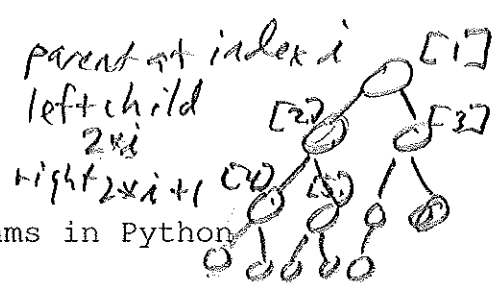 parent at index i
left child
2*i
right 2*i+1
[1]
[2]
[3]
[4]
[5]
ams in Python